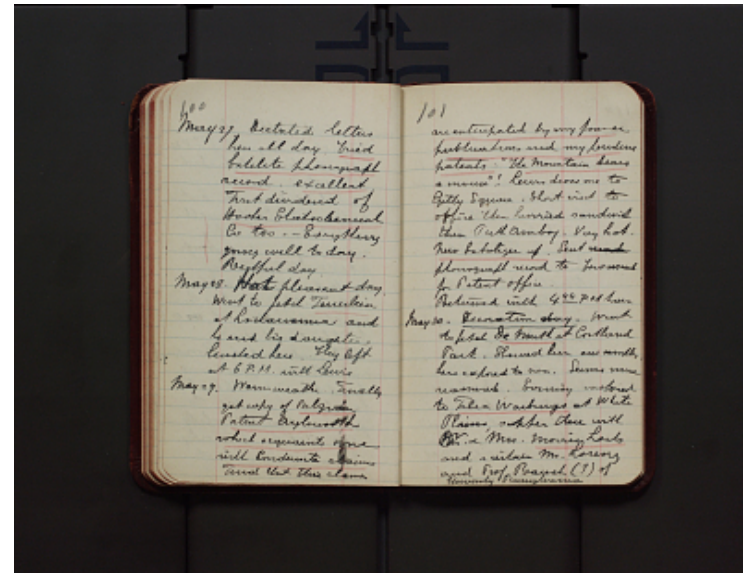 100
May 27. Dictated letters
here all day. Tried
bakelite phonograph
record. excellent
First dividend of
Hooker Electrochemical
Co too. - Everything
going well to day.
Restful day
May 28. Hot pleasant day.
Went to fetch
at Lackawanna and
he and his daughter
lunched here. They left
at 6 P.M. with Lewis
May 29. Warm weather. Finally
got copy of
Patent Aylsworth
which acquaints me
with Condensite claims
and that this claims
101
are anticipated by my former
publications and my pending
patents: "The Mountain bears
a mouse"! Lewis drove me to
Getty Square. Short visit to
office then hurried sandwich
then Perth Amboy. Very hot.
New up. Sent
phonograph record to Townsend
for Patent office.
Returned with 4 40 P.M. train
May 30. Decoration day. Went
to fetch De Muth at Cortland
Park. Showed him one month
here exposed to sun. Seems more
. Evening motored
to Felix Warburgs at White
Plains, supper there with
Dr. & Mrs. Morris Loeb
and a certain Mr.
and Prof. (?) of
University Pennsylvania